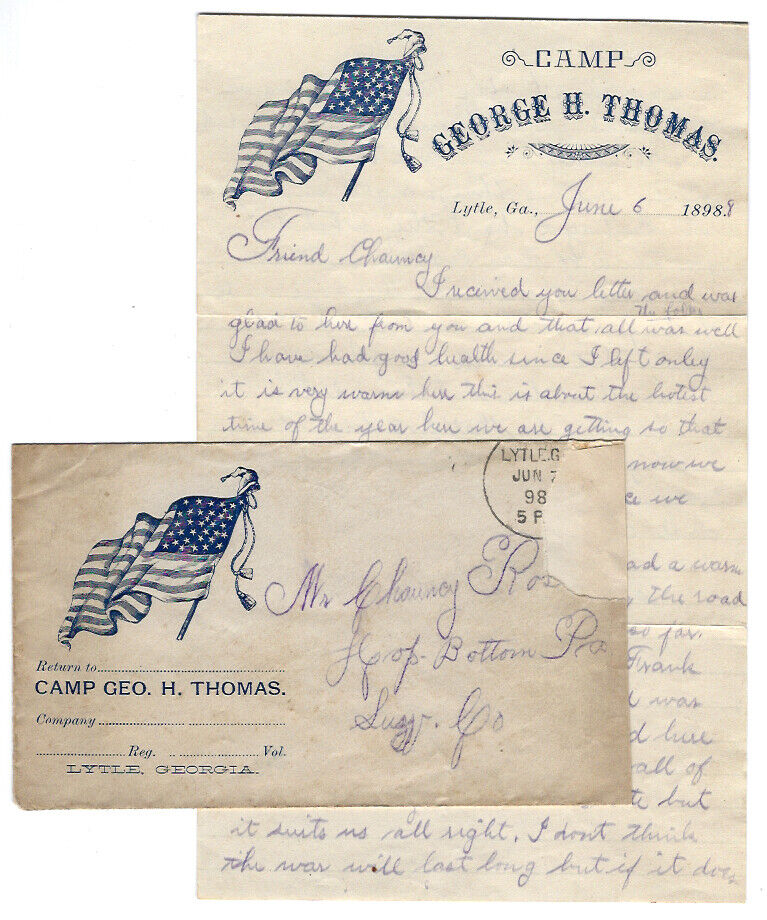 CAMP
GEORGE H. THOMAS.
Lytle, Ga., June 6 1898.8
Friend Chauncy
I received you letter and was
the folks
glad to here from you and that all was well
I have had good health since I left onley
it is very warm here this is about the hotest
time of the year here we are getting so that
now we
we
had a warm
the road
so far.
Frank
was
here
all of
but
it suits us all right. I dont think
the war will last long but if it does
LYTLE.G
JUN 7
98
5 P
Mr Chauncy Ros
Hop-Bottom Pa
Susq. Co
Return to
CAMP GEO. H. THOMAS.
Company
Reg. Vol.
LYTLE, GEORGIA.